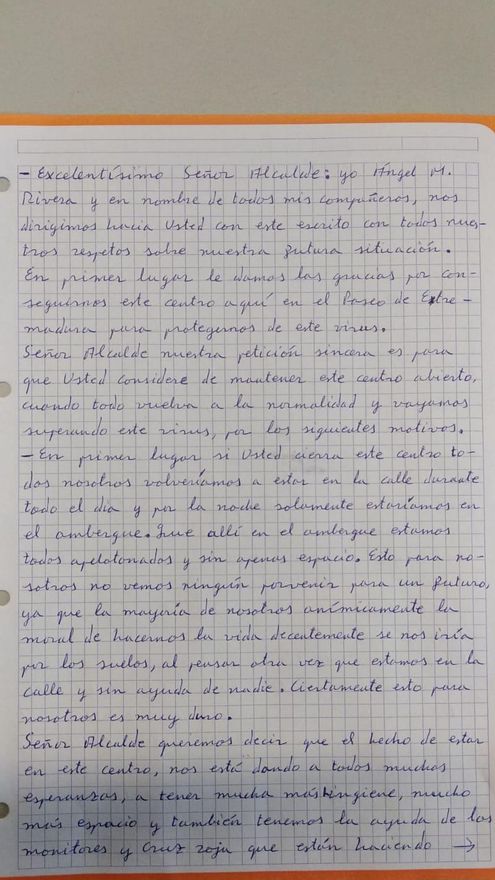 - Excelentísimo Señor Alcalde: yo Ángel M.
Rivera y en nombre de todos mis compañeros, nos
dirigimos hacia Usted con este escrito con todos nues-
tros respetos sobre nuestra futura situación.
En primer lugar le damos las gracias por con-
seguirnos este centro aquí en el Paseo de Extre-
madura para protegernos de este virus.
Señor Alcalde nuestra petición sincera es para
que Usted considere de mantener este centro abierto,
cuando todo vuelva a la normalidad y vayamos
superando este virus, por los siguientes motivos.
- En primer lugar si Usted cierra este centro to-
dos nosotros volveríamos a estar en la calle durante
todo el día y por la noche solamente estaríamos en
el ambergue. Que allí en el ambergue estamos
todos apelotonados y sin apenas espacio. Esto para no-
sotros no vemos ningún porvenir para un futuro,
ya que la mayoría de nosotros anímicamente la
moral de hacernos la vida decentemente se nos iría
por los suelos, al pensar otra vez que estamos en la
calle y sin ayuda de nadie. Ciertamente esto para
nosotros es muy duro.
Señor Alcalde queremos decir que el hecho de estar
en este centro, nos está dando a todos muchas
esperanzas, a tener mucha más hingiene, mucho
más espacio y también tenemos la ayuda de los
monitores y Cruz roja que están haciendo →